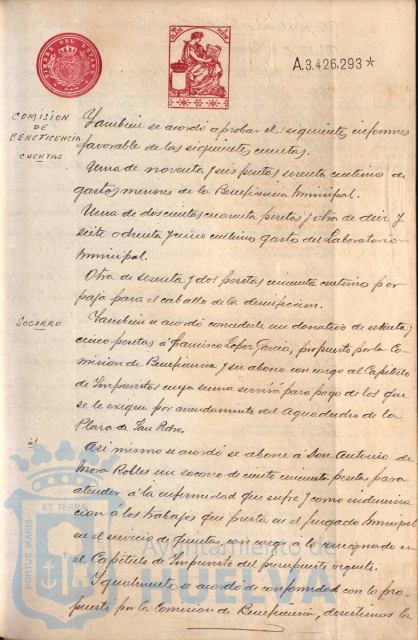 TIMBRE DEL ESTADO
A.3.426.293*
COMISION
DE
BENEFICENCIA
CUENTAS
Tambien se acordó aprobar el siguiente informe
favorable de las siguientes cuentas.
Una de noventa y seis pesetas sesenta centimos de
gastos menores de la Beneficencia Municipal.
Una de doscientas cuarenta pesetas y otra de diez y
siete ochenta y cinco centimos gastos del Laboratorio
Municipal.
Otra de sesenta y dos pesetas cincuenta centimos por
paja para el caballo de la desinfeccion.
SOCORRO
Tambien se acordó concederle un donativo de setenta y
cinco pesetas á Francisco Lopez Garcia, propuesto por la Co-
mision de Beneficencia y su abono con cargo al Capitulo
de Imprevistos cuya suma servirá para pago de los que
se le exigen por arrendamiento del Aguaducho de la
Plaza de San Pedro.
id
Asi mismo se acordó se abone á Don Antonio de
Mora Robles un socorro de ciento cincuenta pesetas para
atender á la enfermedad que sufre y como indemniza-
cion á los trabajos que presta en el Juzgado Municipal
en el servicio de quintas, con cargo a lo consignado en
el Capitulo de Imprevistos del presupuesto vigente.
Igualmente se acordó de conformidad con lo pro-
puesto por la Comision de Beneficencia, desestimar la
PORTUS MARIS ET TERRAE
Ayuntamiento de
HUELVA